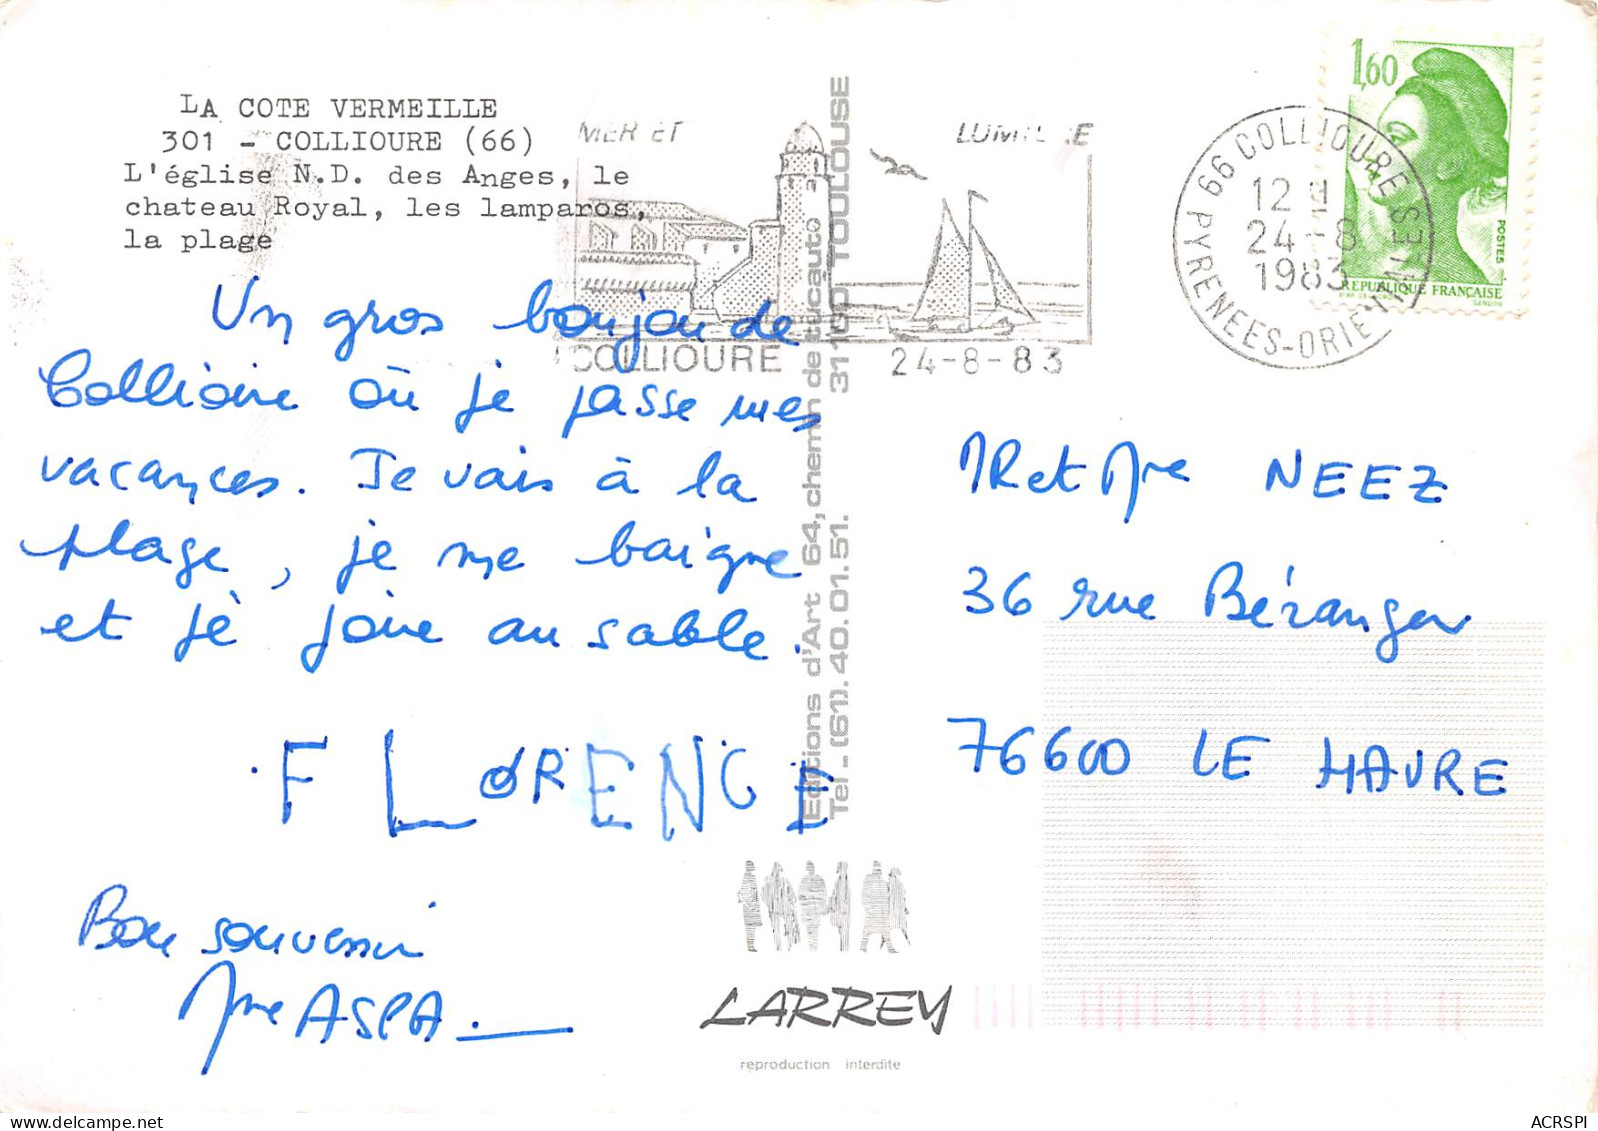 LA COTE VERMEILLE
301 - COLLIOURE (66)
L'église N.D. des Anges, le
chateau Royal, les lamparos,
la plage
MER ET LUMIERE
COLLIOURE 24-8-83
66 COLLIOURE
12 H
24-8
1983
PYRENEES-ORIENTALES
1,60
POSTES
REPUBLIQUE FRANÇAISE
Un gros boujou de
Collioure où je passe mes
vacances. Je vais à la
plage, je me baigne
et je joue au sable.
FLORENCE
Bon souvenir
Mme ASPA
Editions d'Art 64, chemin de tucauto 31100 TOULOUSE
Tel _ (61). 40.01.51.
MR et Mme NEEZ
36 rue Béranger
76600 LE HAVRE
LARREY
reproduction interdite
ACRSPI